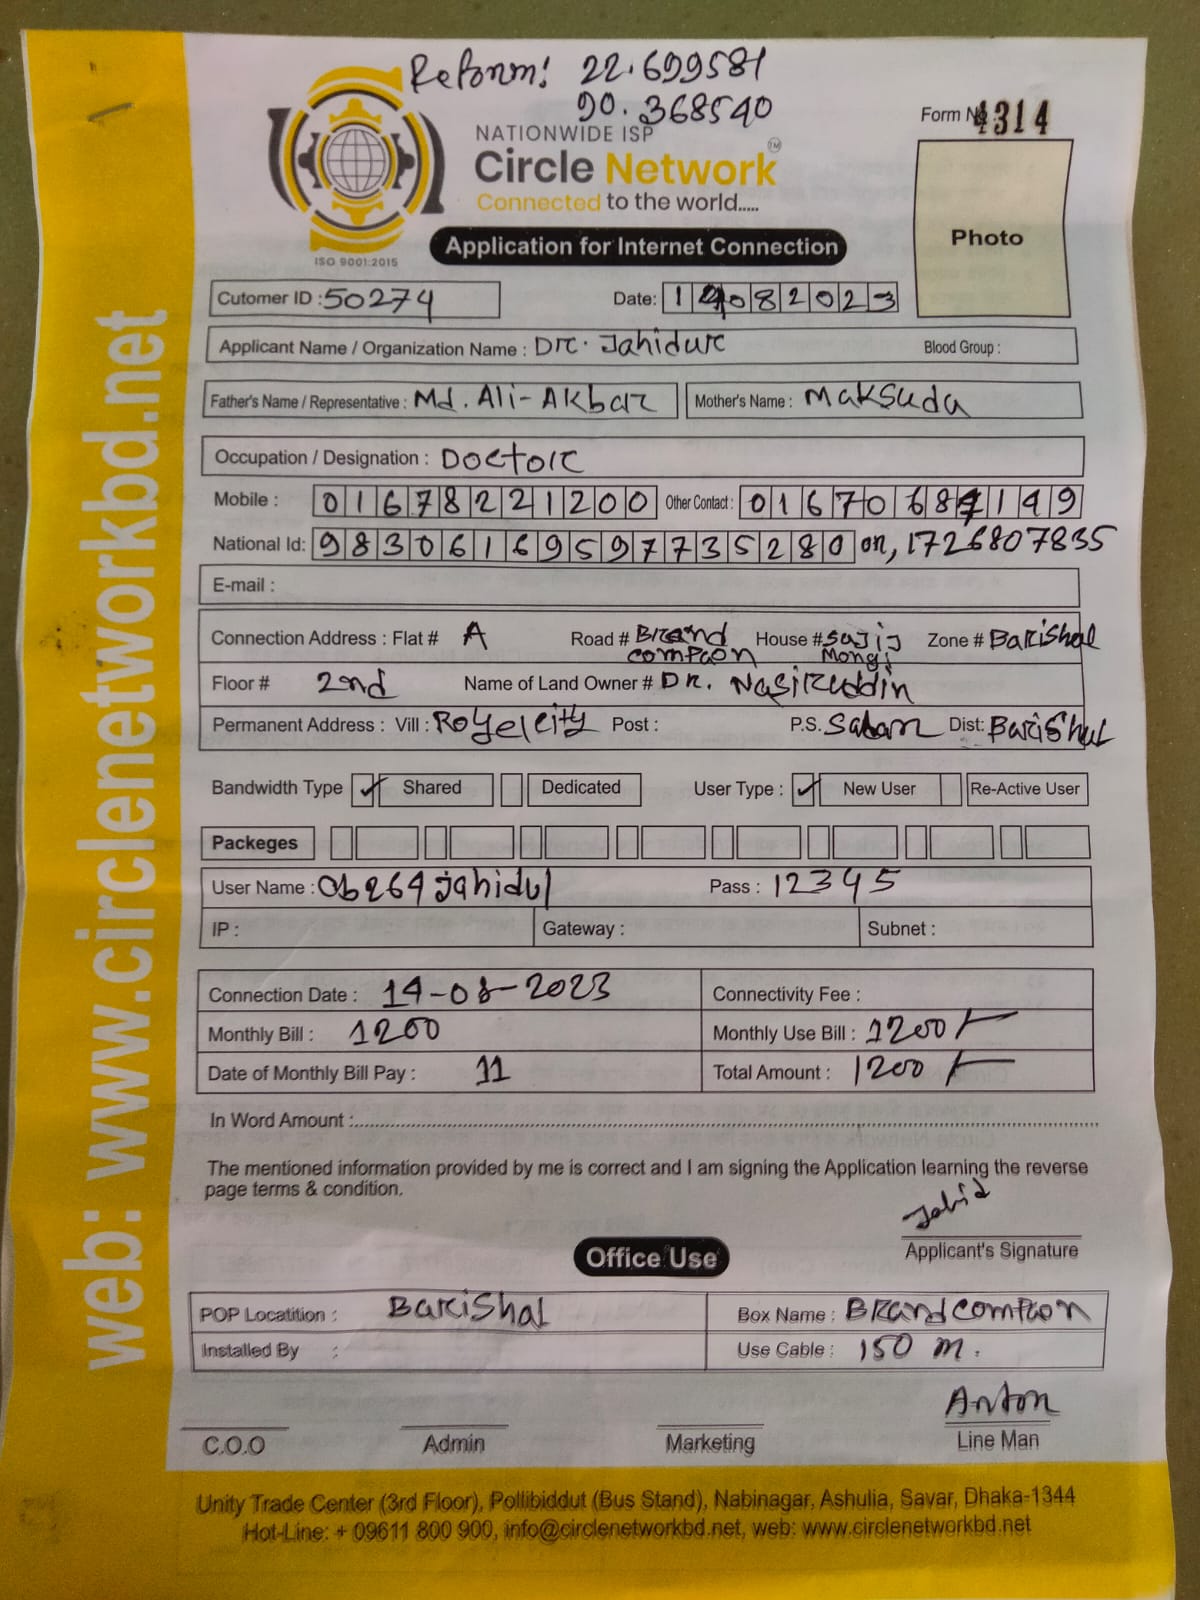 Reform: 22.699581
90.368540
NATIONWIDE ISP
Circle Network TM
Connected to the world.....
ISO 9001:2015
Form No 4314
Photo
Application for Internet Connection
Cutomer ID : 50274 Date: 14082023
Applicant Name / Organization Name : Dr. Jahidur Blood Group :
Father's Name / Representative : Md. Ali-Akbar Mother's Name : Maksuda
Occupation / Designation : Doctor
Mobile : 01678221200 Other Contact : 01670684149
National Id: 98306169597735280 on, 1726807835
E-mail :
Connection Address : Flat # A Road # Brand compaon House # Zone # Barishal
Floor # 2nd Name of Land Owner # DR. Nasiruddin
Permanent Address : Vill : Royelcity Post : P.S. Sadar Dist: Barishal
Bandwidth Type ✓ Shared Dedicated User Type : ✓ New User Re-Active User
Packeges
User Name : Ob264jahidul Pass : 12345
IP : Gateway : Subnet :
Connection Date : 14-08-2023 Connectivity Fee :
Monthly Bill : 1200 Monthly Use Bill : 1200/-
Date of Monthly Bill Pay : 11 Total Amount : 1200/-
In Word Amount :
The mentioned information provided by me is correct and I am signing the Application learning the reverse
page terms & condition.
Jahid
Applicant's Signature
Office Use
POP Locatition : Barishal Box Name : Brandcompaon
Installed By : Use Cable : 150 m.
Anton
C.O.O Admin Marketing Line Man
Unity Trade Center (3rd Floor), Pollibiddut (Bus Stand), Nabinagar, Ashulia, Savar, Dhaka-1344
Hot-Line: + 09611 800 900, info@circlenetworkbd.net, web: www.circlenetworkbd.net
web: www.circlenetworkbd.net